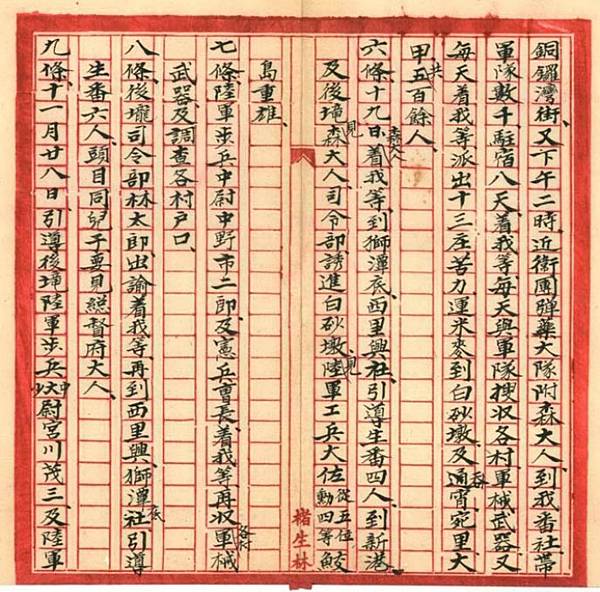 銅鑼灣街、又下午二時、近衛團彈藥大隊附森大人、到我番社帶
軍隊數千、駐宿八天、着我等每天與軍隊搜収各村軍械武器、又
每天着我等派出十三庄苦力運米麥到白砂墩、及通霄、宛里大
甲、共五百餘人、
六條十九日、森大人着我等、到獅潭底、西里興社、引導生番四人、到新港
及後埧、見森大人司令部誘進白砂墩、見陸軍工兵大佐從五位勳四等鮫
島重雄、
楷生林
七條、陸軍步兵中尉中野市二郎、及憲兵曹長、着我等、再収各村軍械
武器、及調查各村戶口、
八條、後壠司令部林太郎、出諭着我等再到西里興、獅潭底社、引導
生番六人、頭目同兒子要見総督府大人、
九條、十一月廿八日、引導後埧陸軍步兵中尉宮川茂三、及陸軍